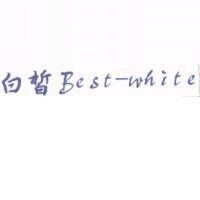 白皙Best-white